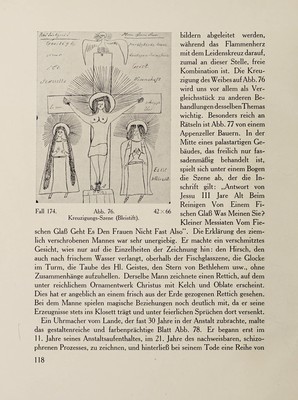 bildern abgeleitet werden,
während das Flammenherz
mit dem Leidenskreuz darauf,
zumal an dieser Stelle, freie
Kombination ist. Die Kreu-
zigung des Weibes auf Abb. 76
wird uns vor allem als Ver-
gleichsstück zu anderen Be-
handlungen desselben Themas
wichtig. Besonders reich an
Rätseln ist Abb. 77 von einem
Appenzeller Bauern. In der
Mitte eines palastartigen Ge-
bäudes, das freilich nur fas-
sadenmäßig behandelt ist,
spielt sich unter einem Bogen
die Szene ab, der die In-
schrift gilt: „Antwort von
Jessu III Jare Alt Beim
Reinigen Von Einem Fi-
schen Glaß Was Meinen Sie?
Kleiner Messiaten Vom Fi-
Fall 174. Abb. 76. 42×66
Kreuzigungs-Szene (Bleistift).
schen Glaß Geht Es Den Frauen Nicht Fast Also“. Die Erklärung des ziem-
lich verschrobenen Mannes war sehr unergiebig. Er machte ein verschmitztes
Gesicht, wies nur auf die Einzelheiten der Zeichnung hin: den Hirsch, den
auch nach frischem Wasser verlangt, oberhalb der Fischglasszene, die Glocke
im Turm, die Taube des Hl. Geistes, den Stern von Bethlehem usw., ohne
Zusammenhänge aufzuhellen. Derselbe Mann zeichnete einen Rettich, auf dem
unter reichlichem Ornamentwerk Christus mit Kelch und Oblate erscheint.
Dies hat er angeblich an einem frisch aus der Erde gezogenen Rettich gesehen.
Bei dem Manne spielen magische Beziehungen noch deutlich mit, da er seine
Erzeugnisse stets im Klosett trägt und unter feierlichen Sprüchen dort versenkt.
Ein Uhrmacher vom Lande, der fast 30 Jahre in der Anstalt zubrachte, malte
das gestaltenreiche und farbenprächtige Blatt Abb. 78. Er begann erst im
11. Jahre seines Anstaltsaufenthaltes, im 21. Jahre des nachweisbaren, schizo-
phrenen Prozesses, zu zeichnen, und hinterließ bei seinem Tode eine Reihe von
118